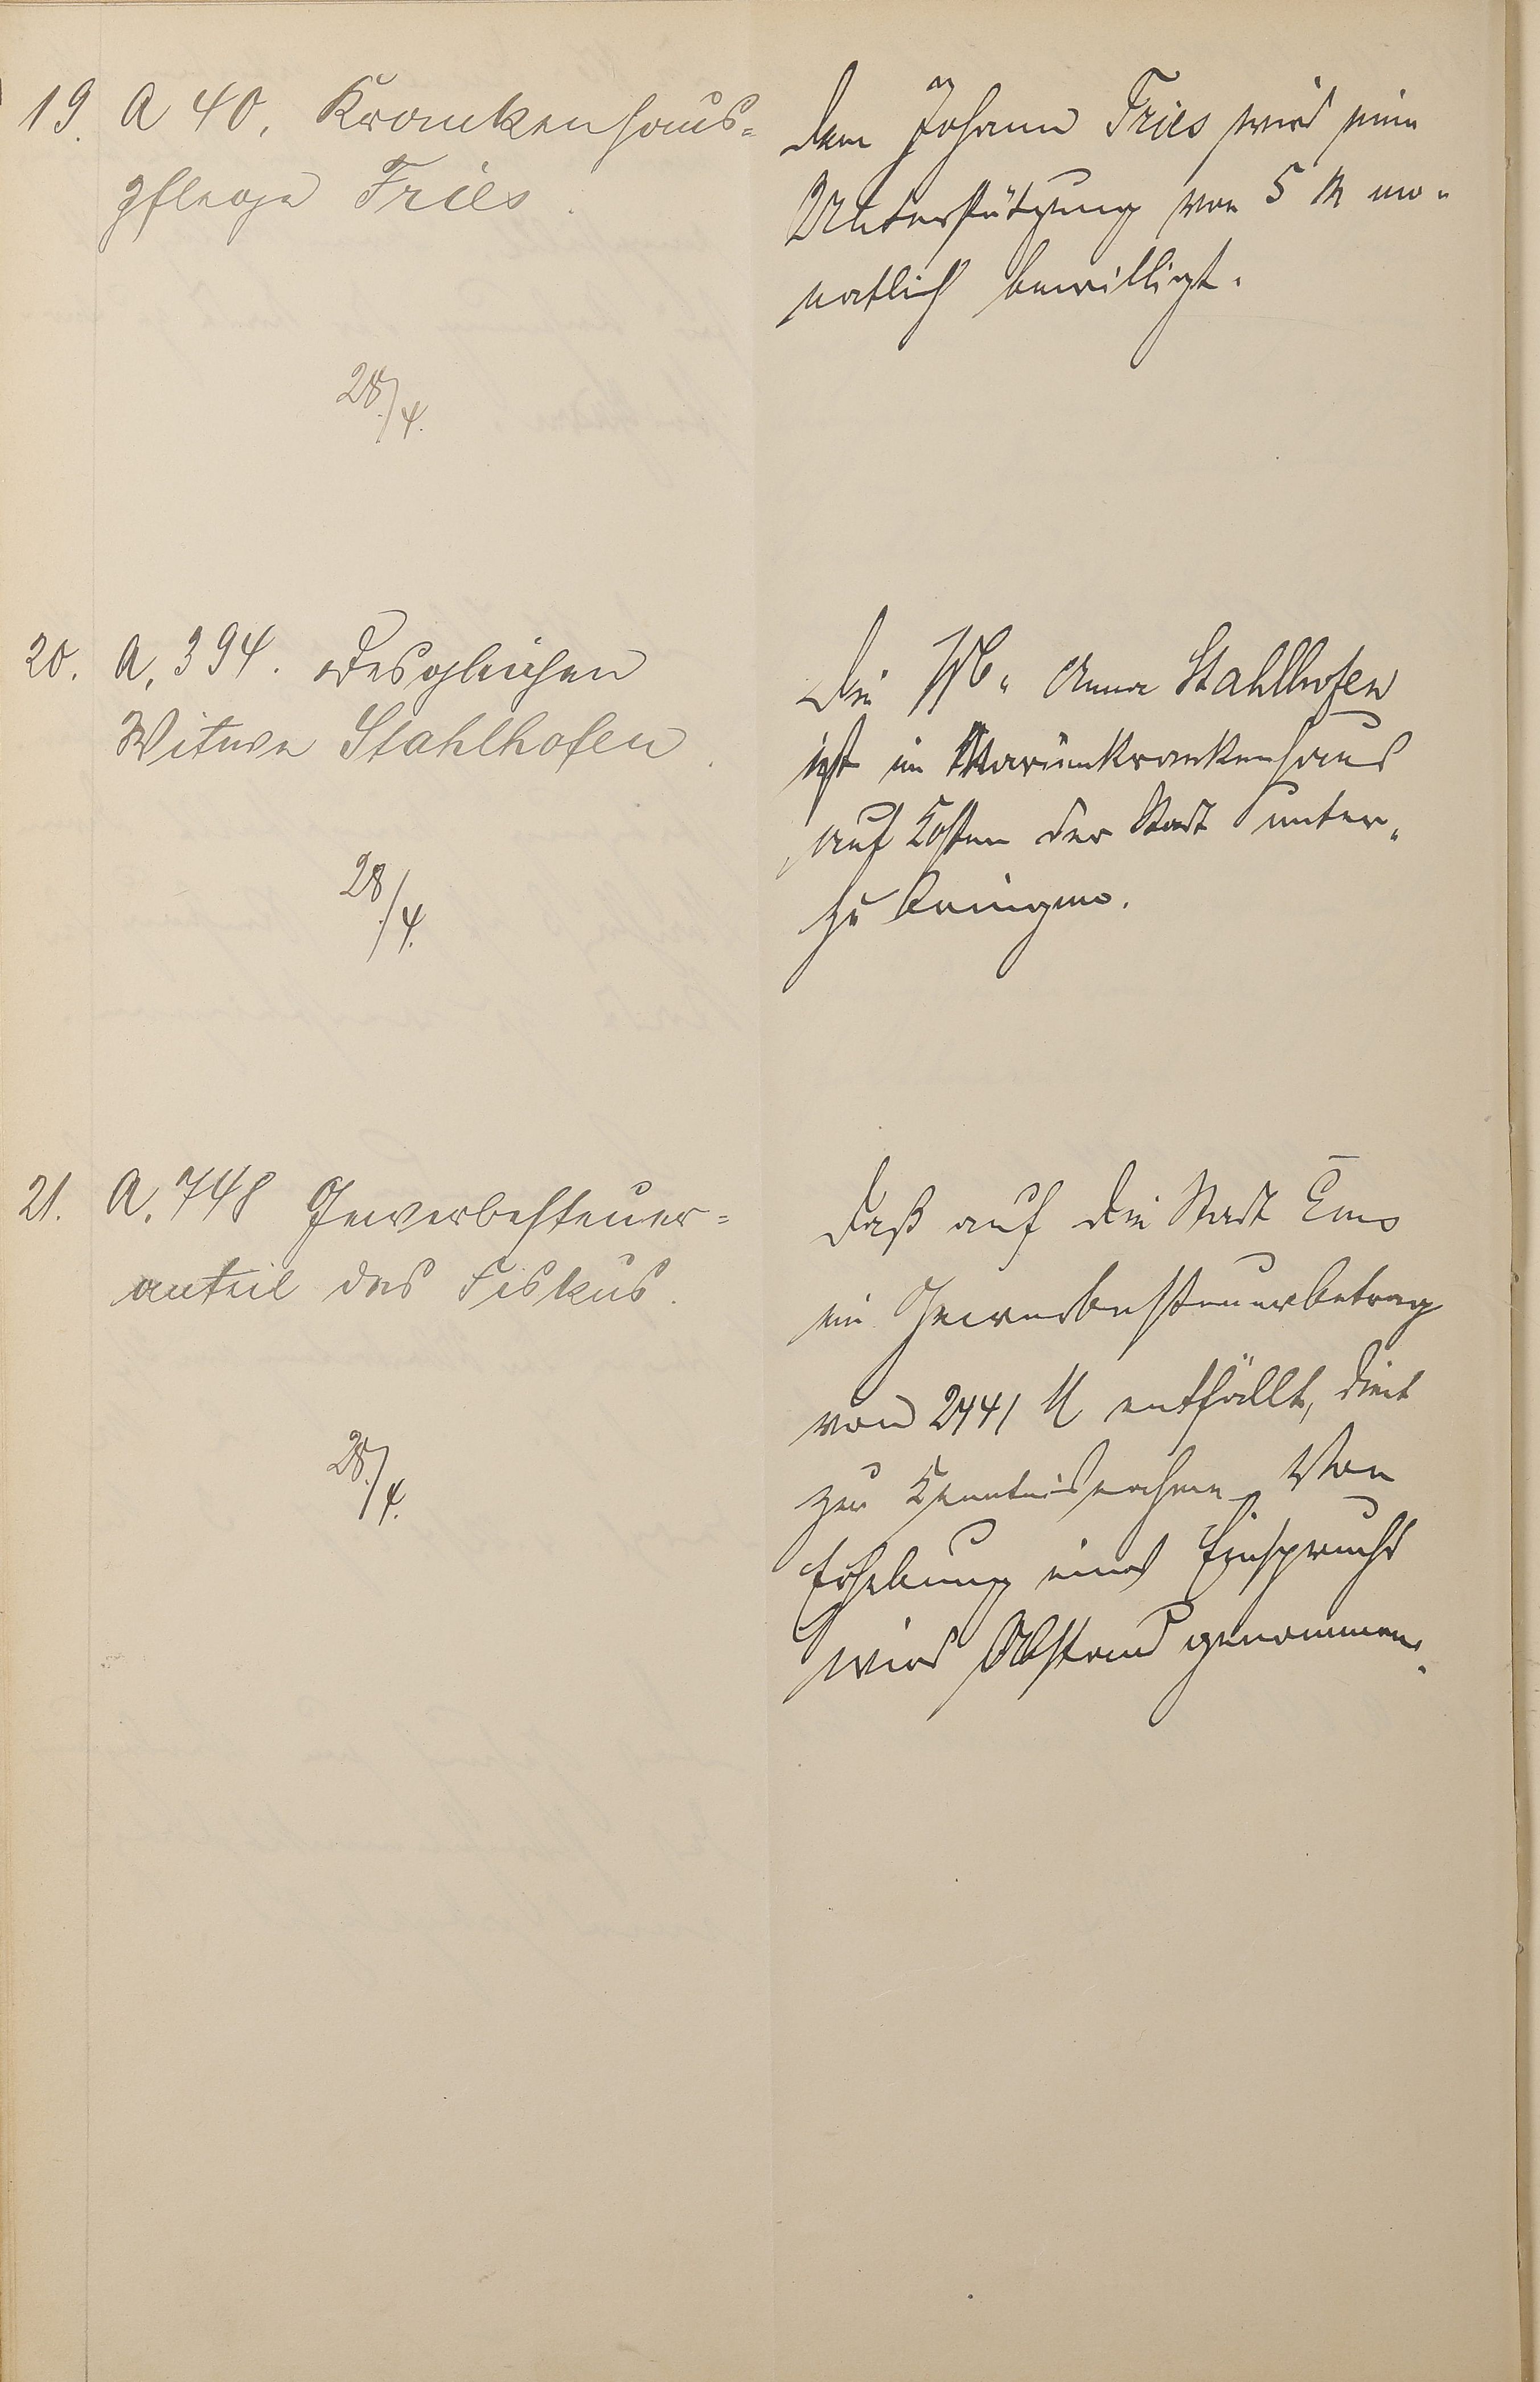 19. A 40. Krankenhaus=
pflege Fries.
28./4.
Dem Johann Fries wird eine
Unterstützung von 5 M mo-
natlich bewilligt.
20. A. 394. Desgleichen
Witwe Stahlhofen.
28./4.
Die Ww. Anna Stahlhofen
ist im Marienkrankenhaus
auf Kosten der Stadt unter-
zu bringen.
21. A. 748 Gewerbesteuer=
anteil des Fiskus.
28./4.
Daß auf die Stadt Ems
ein Gewerbesteuerbetrag
von 2441 M entfällt, dient
zur Kenntnisnahme. Von
Erhebung eines Einspruchs
wird Abstand genommen.